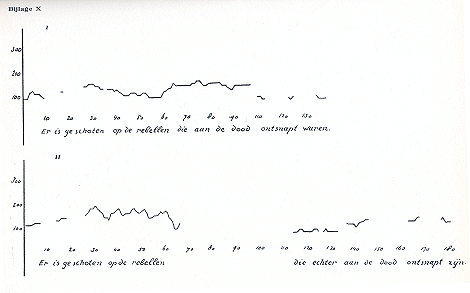 Bijlage X
I
300
200
100
10 20 30 40 50 60 70 80 90 110 120 130
Er is geschoten op de rebellen die aan de dood ontsnapt waren.
II
300
200
100
10 20 30 40 50 60 70 80 90 100 110 120 130 140 150 160 170 180
Er is geschoten op de rebellen die echter aan de dood ontsnapt zijn.